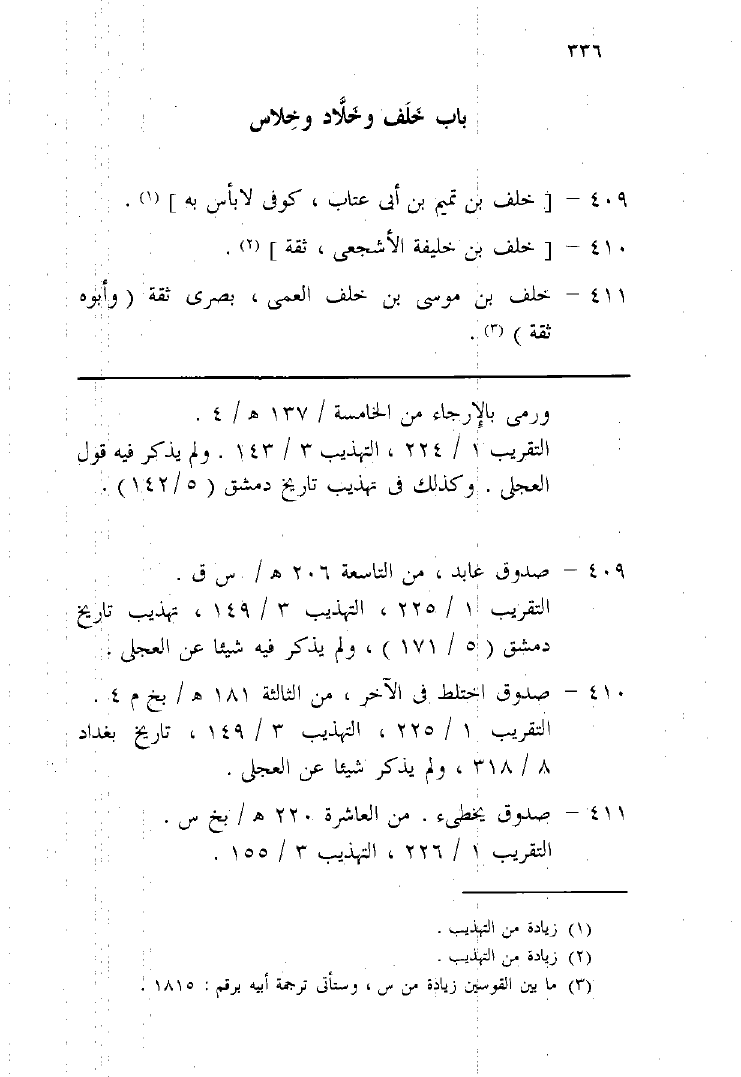 ٣٣٦
باب خَلَف وخَلَّاد وخِلاس
٤٠٩ – [ خلف بن تميم بن أبى عتاب ، كوفى لابأس به ] (١) .
٤١٠ – [ خلف بن خليفة الأشجعى ، ثقة ] (٢) .
٤١١ – خلف بن موسى بن خلف العمى ، بصرى ثقة ( وأبوه
ثقة ) (٣) .
ورمى بالإرجاء من الخامسة / ١٣٧ هـ / ٤ .
التقريب ١ / ٢٢٤ ، التهذيب ٣ / ١٤٣ . ولم يذكر فيه قول
العجلى . وكذلك فى تهذيب تاريخ دمشق ( ٥ / ١٤٢ ) .
٤٠٩ – صدوق عابد ، من التاسعة ٢٠٦ هـ / س ق .
التقريب ١ / ٢٢٥ ، التهذيب ٣ / ١٤٩ ، تهذيب تاريخ
دمشق ( ٥ / ١٧١ ) ، ولم يذكر فيه شيئا عن العجلى .
٤١٠ – صدوق اختلط فى الآخر ، من الثالثة ١٨١ هـ / بخ م ٤ .
التقريب ١ / ٢٢٥ ، التهذيب ٣ / ١٤٩ ، تاريخ بغداد
٨ / ٣١٨ ، ولم يذكر شيئا عن العجلى .
٤١١ – صدوق يخطىء . من العاشرة ٢٢٠ هـ / بخ س .
التقريب ١ / ٢٢٦ ، التهذيب ٣ / ١٥٥ .
(١) زيادة من التهذيب .
(٢) زيادة من التهذيب .
(٣) ما بين القوسين زيادة من س ، وستأتى ترجمة أبيه برقم : ١٨١٥ .